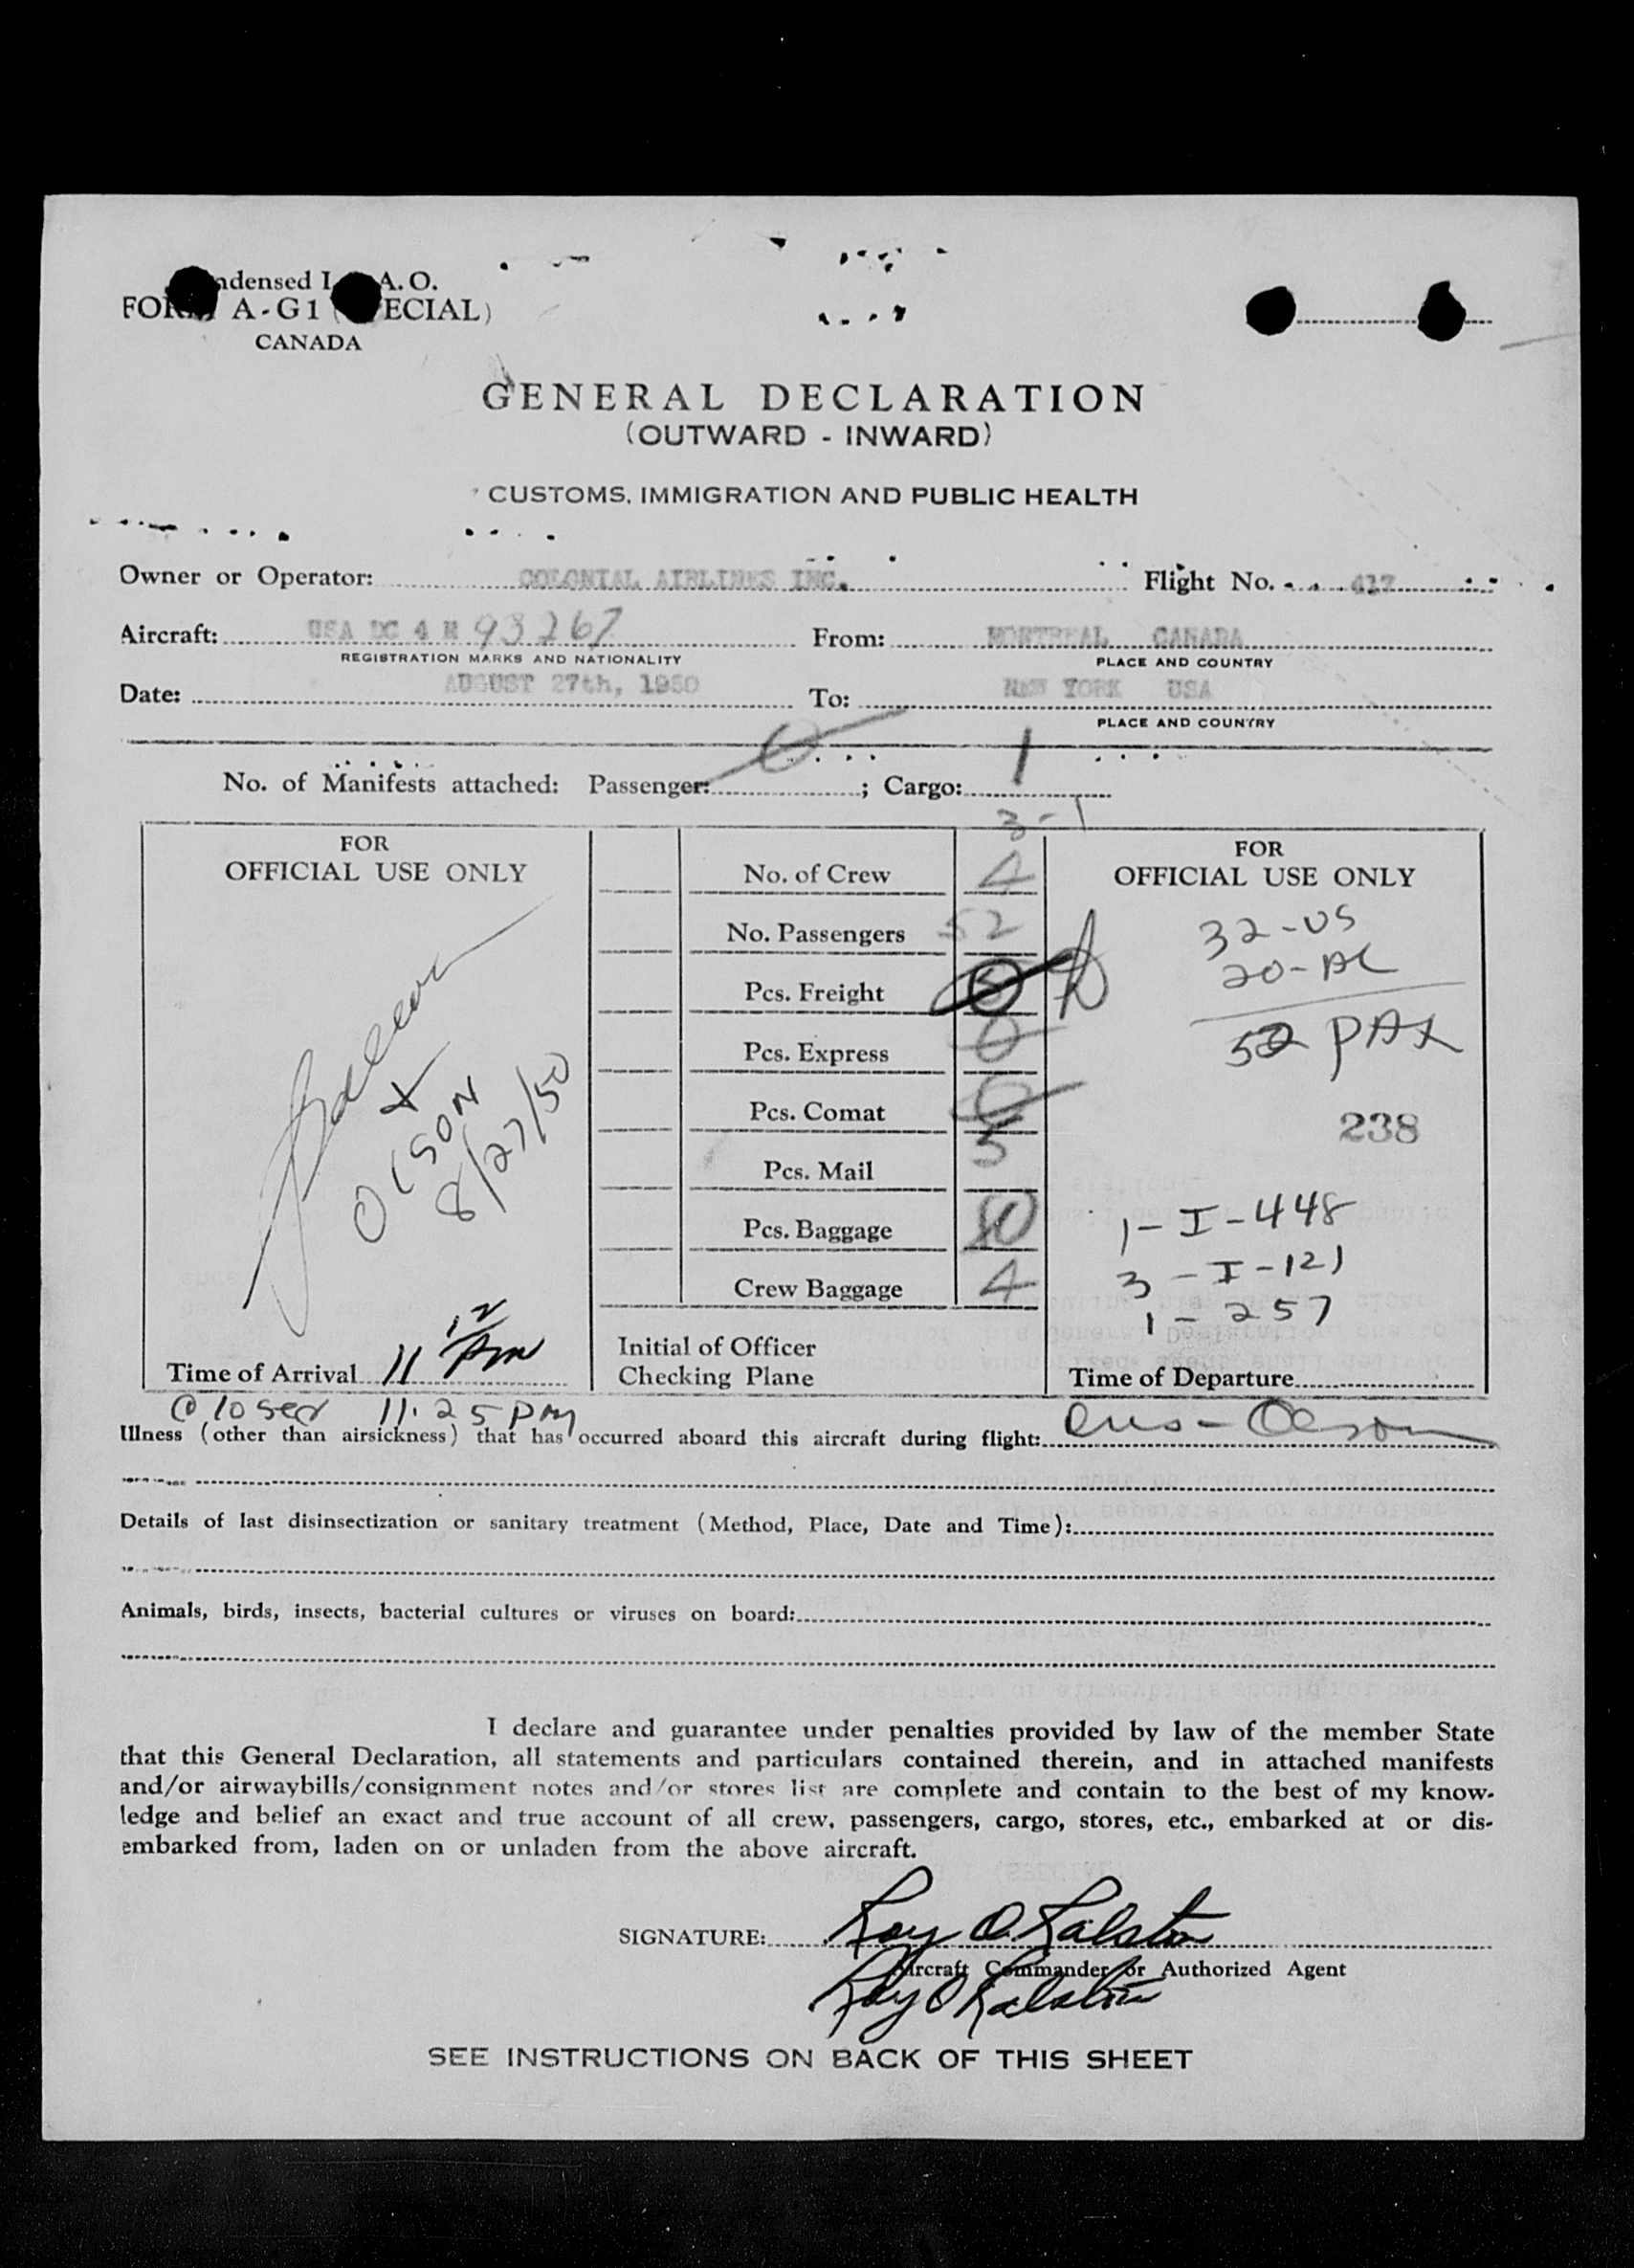 ndensed I A. O.
FOR A-G1 ( ECIAL)
CANADA
GENERAL DECLARATION
(OUTWARD - INWARD)
CUSTOMS, IMMIGRATION AND PUBLIC HEALTH
Owner or Operator: COLONIAL AIRLINES INC. Flight No. 417
Aircraft: USA DC 4 N 93267 From: MONTREAL CANADA
REGISTRATION MARKS AND NATIONALITY PLACE AND COUNTRY
Date: AUGUST 27th, 1950 To: NEW YORK USA
PLACE AND COUNTRY
No. of Manifests attached: Passenger: 0 ; Cargo: 1
3-1
FOR
OFFICIAL USE ONLY
OLSON
8/27/50
Time of Arrival 11 12 PM
No. of Crew 4
No. Passengers 52
Pcs. Freight
Pcs. Express 0
Pcs. Comat 0
Pcs. Mail 5
Pcs. Baggage 80
Crew Baggage 4
Initial of Officer
Checking Plane
FOR
OFFICIAL USE ONLY
32-US
20-AL
52 PAX
238
1-I-448
3-I-121
1-257
Time of Departure
11.25 PM
Illness (other than airsickness) that has occurred aboard this aircraft during flight: Olson
Details of last disinsectization or sanitary treatment (Method, Place, Date and Time):
Animals, birds, insects, bacterial cultures or viruses on board:
I declare and guarantee under penalties provided by law of the member State
that this General Declaration, all statements and particulars contained therein, and in attached manifests
and/or airwaybills/consignment notes and/or stores list are complete and contain to the best of my know-
ledge and belief an exact and true account of all crew, passengers, cargo, stores, etc., embarked at or dis-
embarked from, laden on or unladen from the above aircraft.
SIGNATURE: Roy O. Ralston
Aircraft Commander or Authorized Agent
Roy O Ralston
SEE INSTRUCTIONS ON BACK OF THIS SHEET